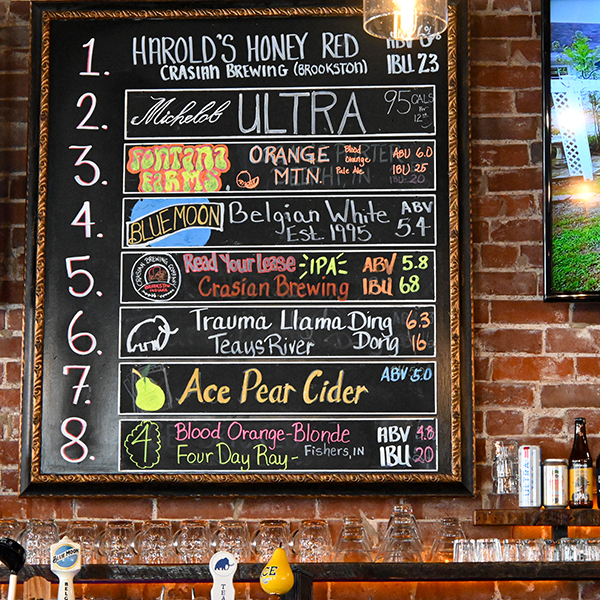 1. HAROLD'S HONEY RED ABV 6%
CRASIAN BREWING (BROOKSTON) IBU 23
2. Michelob ULTRA 95 CALS
12oz
3. FONTANA FARMS ORANGE MTN. Blood Orange Pale Ale ABV 6.0
IBU 25
4. BLUE MOON Belgian White ABV
EST. 1995 5.4
5. CRASIAN BREWING COMPANY Read Your Lease IPA ABV 5.8
Crasian Brewing IBU 68
6. Trauma Llama Ding Dong 6.3
Teays River 16
7. Ace Pear Cider ABV 5.0
8. 4 Blood Orange-Blonde ABV 4.8
Four Day Ray - Fishers, IN IBU 20
ULTRA
BLUE MOON